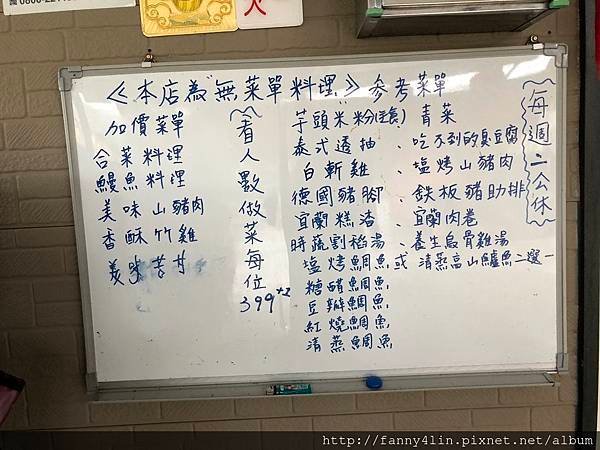 《本店為"無菜單料理》參考菜單
加價菜單
合菜料理
鰻魚料理
美味山豬肉
香酥竹雞
看人數做菜每位399+2
芋頭米粉(主食) 青菜
泰式透抽、吃不到的臭豆腐
白斬雞、塩烤山豬肉
德國豬腳、鉄板豬助排
宜蘭糕渣、宜蘭肉卷
時蔬割稻湯、養生烏骨雞湯
塩烤鯛魚或清蒸高山鱸魚二選一
糖醋鯛魚
豆瓣鯛魚
紅燒鯛魚
清蒸鯛魚
每週二公休
http://fanny4lin.pixnet.net/album